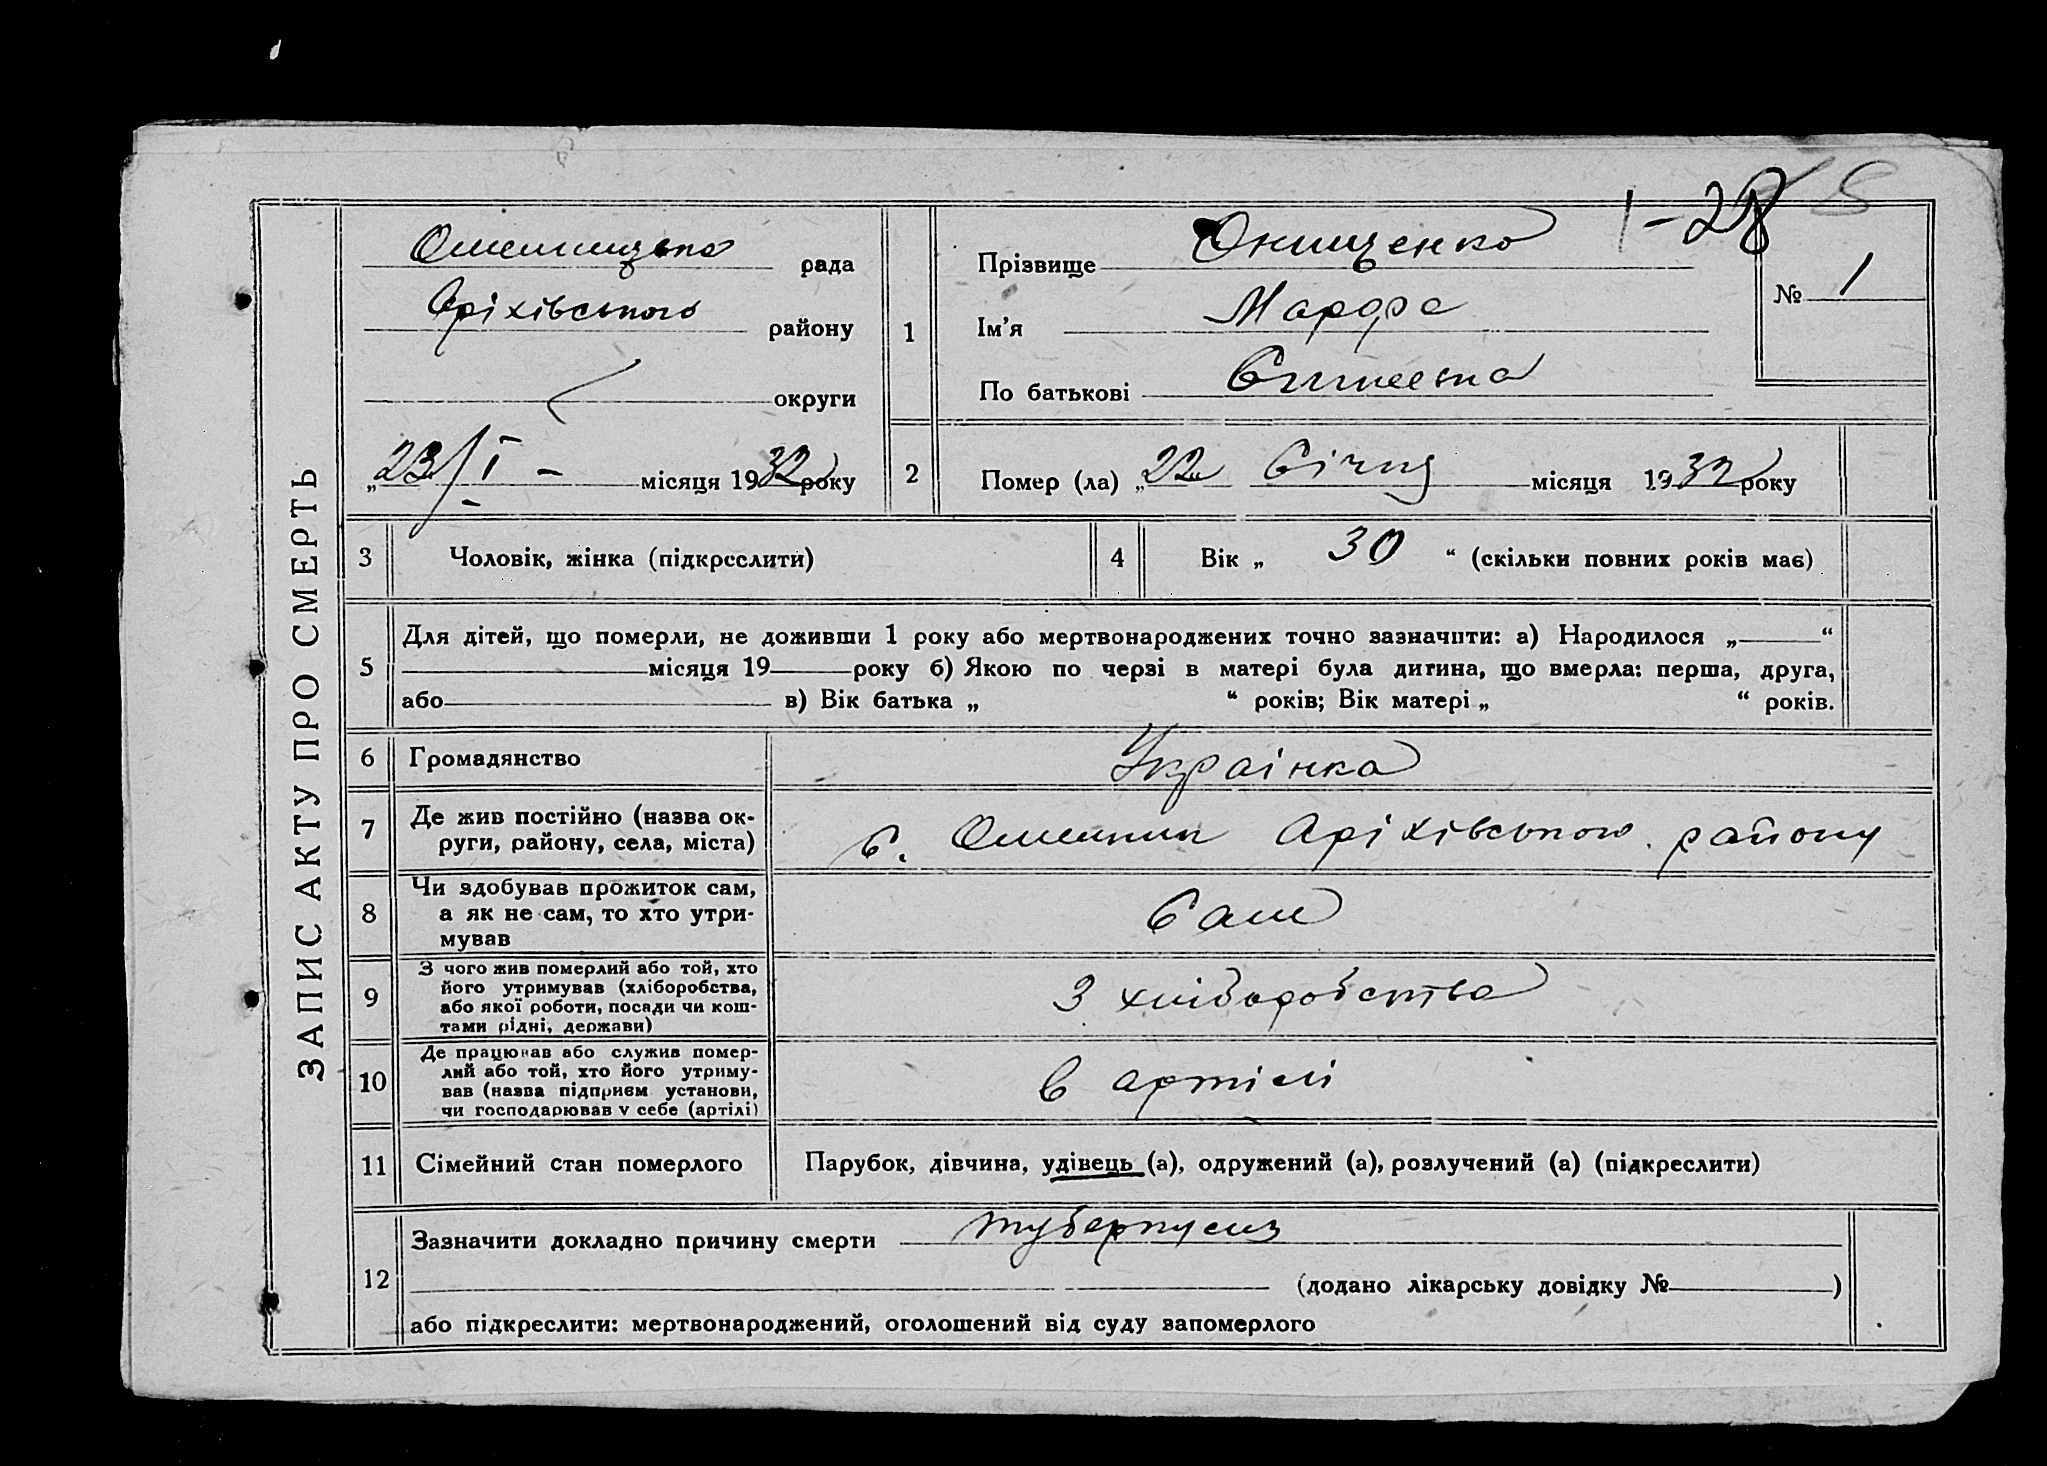 ЗАПИС АКТУ ПРО СМЕРТЬ
Омельницька рада
Оріхівського району
округи
„23/I - місяця 1932 року
1-28
№ 1
1 Прізвище Онищенко
Ім’я Марфа
По батькові
2 Помер (ла) „22 Січня місяця 1932 року
3 Чоловік, жінка (підкреслити)
4 Вік „ 30 “ (скільки повних років має)
5 Для дітей, що померли, не доживши 1 року або мертвонароджених точно зазначити: а) Народилося „ “
місяця 19 року б) Якою по черзі в матері була дитина, що вмерла: перша, друга,
або в) Вік батька „ “ років; Вік матері „ “ років.
6 Громадянство Украінка
7 Де жив постійно (назва ок-
руги, району, села, міста)
с. Омельник Оріхівського району
8 Чи здобував прожиток сам,
а як не сам, то хто утри-
мував
Сам
9 З чого жив померлий або той, хто
його утримував (хліборобства,
або якої роботи, посади чи кош-
тами рідні, держави)
З хліборобства
10 Де працював або служив помер-
лий або той, хто його утриму-
вав (назва підприєм установи,
чи господарював у себе (артілі)
в артілі
11 Сімейний стан померлого
Парубок, дівчина, удівець (а), одружений (а), розлучений (а) (підкреслити)
12 Зазначити докладно причину смерти туберкульоз
(додано лікарську довідку № )
або підкреслити: мертвонароджений, оголошений від суду запомерлого